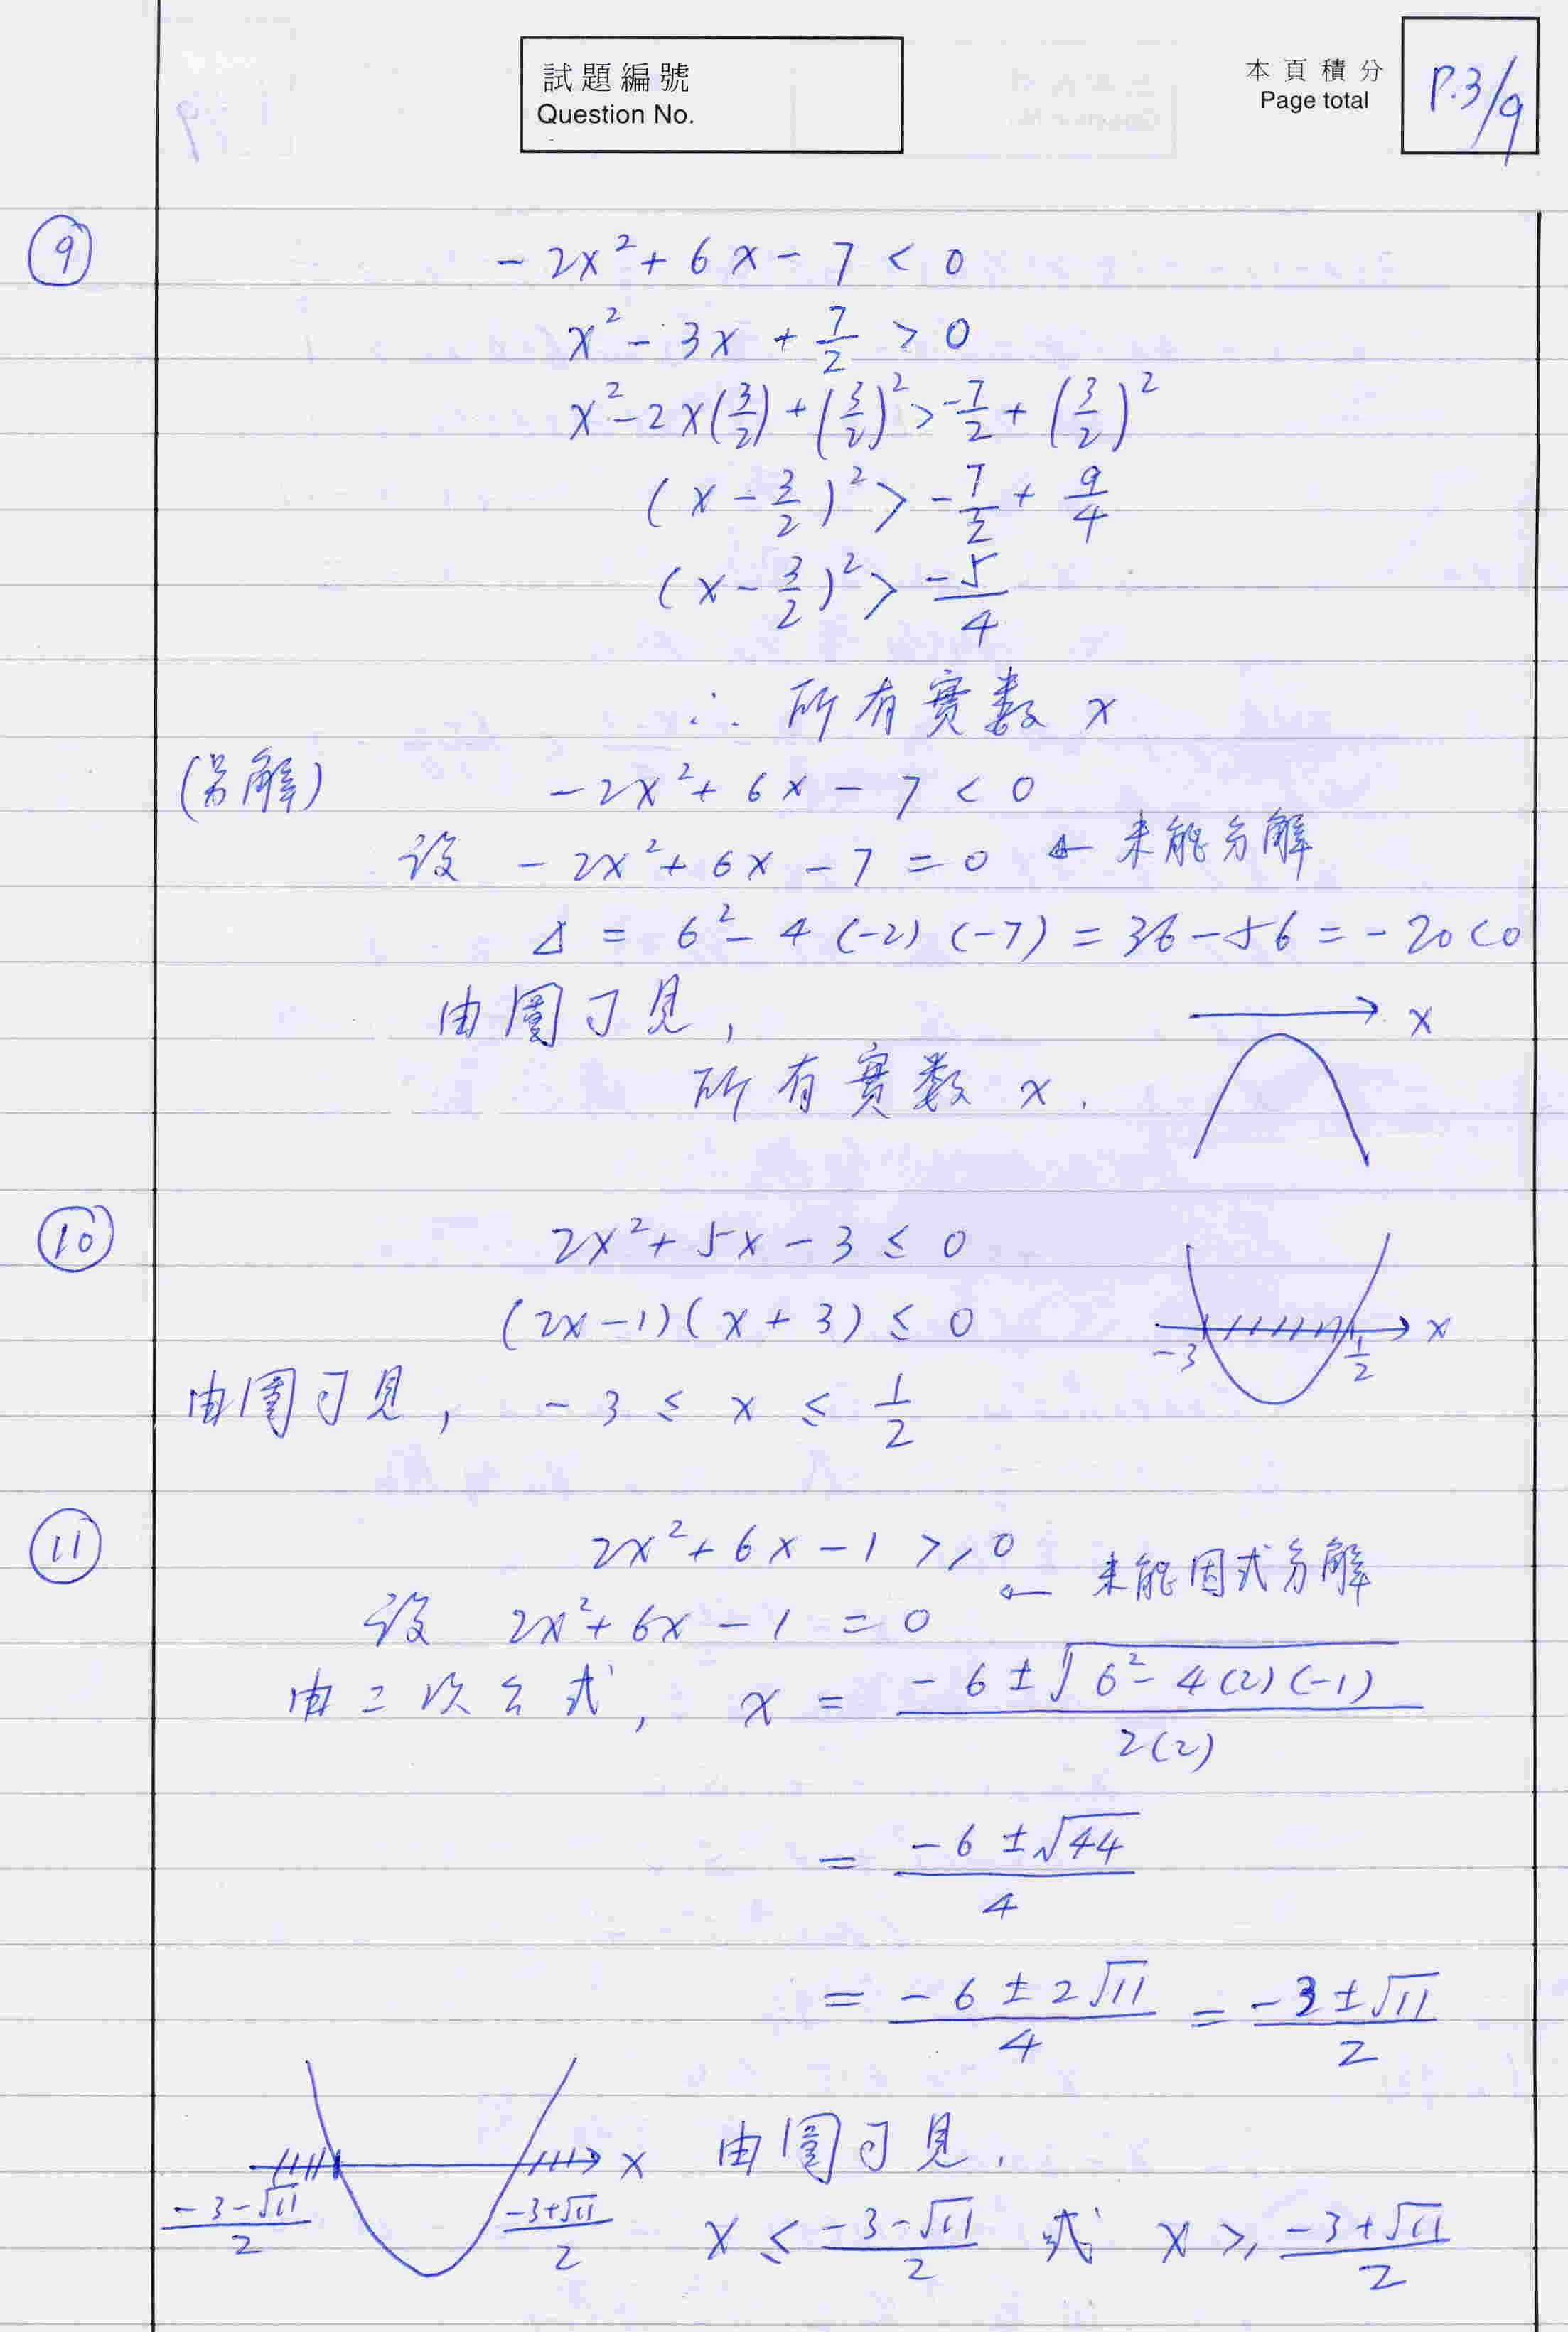 試題編號
Question No.
本頁積分
Page total
P.3/9
⑨ -2x² + 6x - 7 < 0
x² - 3x + 7/2 > 0
x² - 2x(3/2) + (3/2)² > -7/2 + (3/2)²
(x - 3/2)² > -7/2 + 9/4
(x - 3/2)² > -5/4
∴ 所有實數 x
(另解) -2x² + 6x - 7 < 0
設 -2x² + 6x - 7 = 0 ← 未能分解
Δ = 6² - 4(-2)(-7) = 36 - 56 = -20 < 0
由圖可見,
x
所有實數 x.
⑩ 2x² + 5x - 3 ≤ 0
(2x-1)(x+3) ≤ 0
-3 1/2 x
由圖可見, -3 ≤ x ≤ 1/2
⑪ 2x² + 6x - 1 ≥ 0
設 2x² + 6x - 1 = 0 ← 未能因式分解
由二次公式, x = (-6 ± √(6² - 4(2)(-1))) / 2(2)
= (-6 ± √44) / 4
= (-6 ± 2√11) / 4 = (-3 ± √11) / 2
x 由圖可見.
(-3-√11)/2 (-3+√11)/2 x ≤ (-3-√11)/2 或 x ≥ (-3+√11)/2